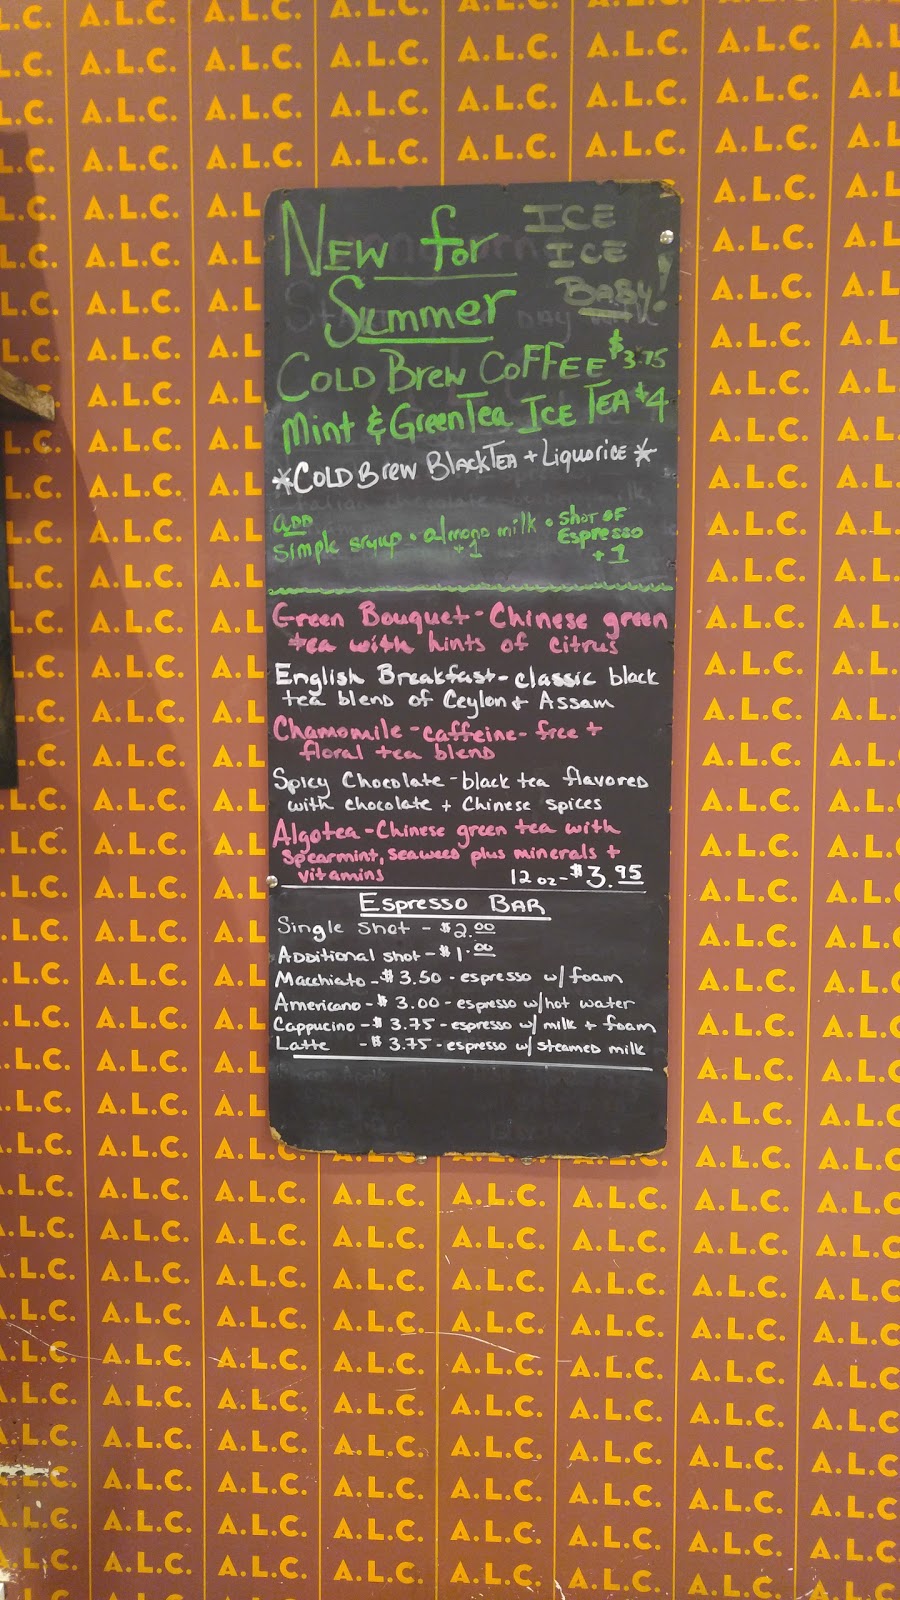 New for
Summer
ICE
ICE
BABY!
Cold Brew Coffee $3.75
Mint & Green Tea Ice Tea $4
*Cold Brew Black Tea + Liquorice*
add
simple sryup • almond milk +1 • shot of Espresso +1
Green Bouquet - Chinese green
tea with hints of citrus
English Breakfast - classic black
tea blend of Ceylon & Assam
Chamomile - caffeine-free +
floral tea blend
Spicy Chocolate - black tea flavored
with chocolate + Chinese spices
Algotea - Chinese green tea with
spearmint, seaweed plus minerals +
vitamins 12 oz - $3.95
Espresso Bar
Single shot - $2.00
Additional shot - $1.00
Macchiato - $3.50 - espresso w/ foam
Americano - $3.00 - espresso w/hot water
Cappucino - $3.75 - espresso w/ milk + foam
Latte - $3.75 - espresso w/ steamed milk
A.L.C.